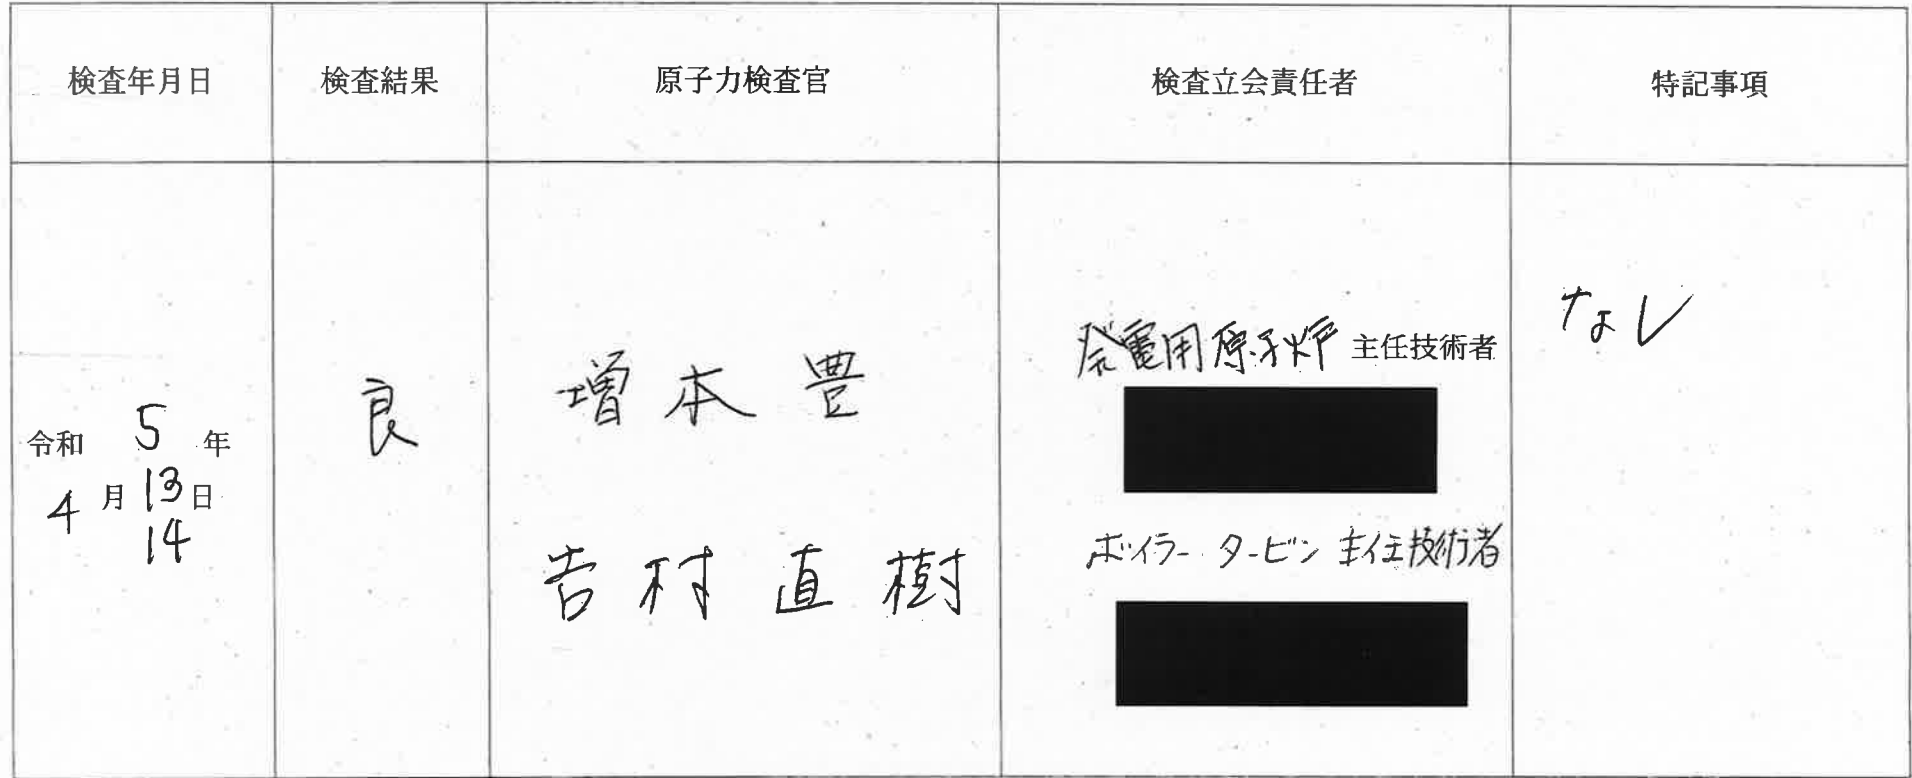 検査年月日
検査結果
原子力検査官
検査立会責任者
特記事項
令和 5 年
4 月 13 日
14
良
増本 豊
吉村 直樹
発電用原子炉 主任技術者
ボイラー・タービン 主任技術者
なし